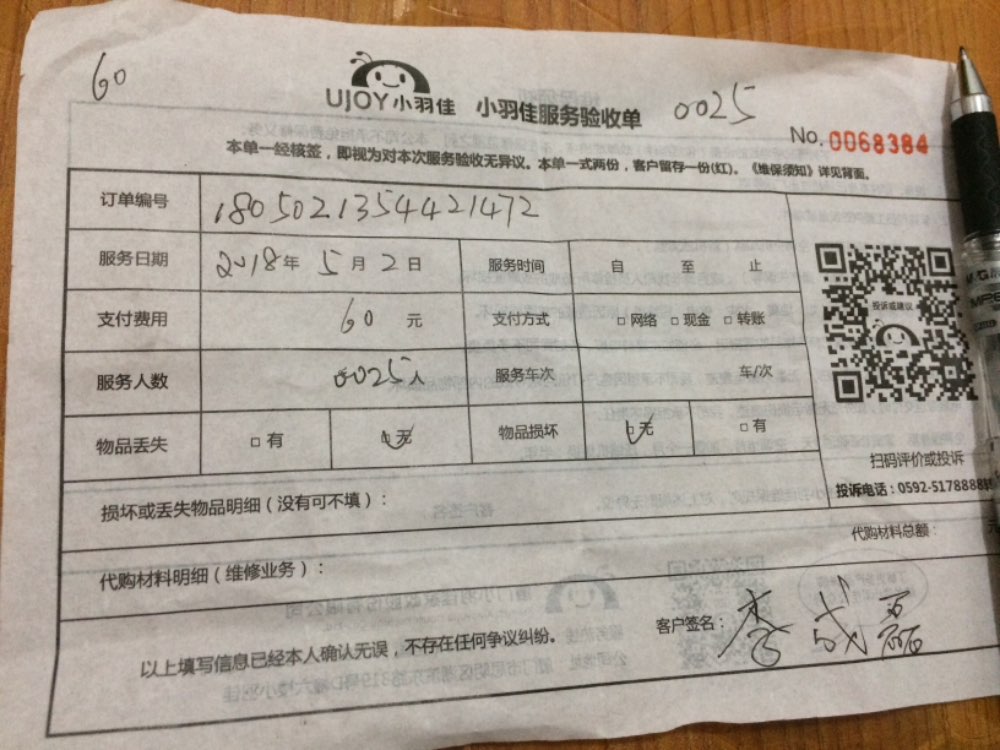 60
UJOY小羽佳 小羽佳服务验收单 0025
No. 0068384
本单一经核签，即视为对本次服务验收无异议。本单一式两份，客户留存一份(红)。《维保须知》详见背面。
订单编号 1805021354421472
服务日期 2018年 5月 2日 服务时间 自 至 止
支付费用 60 元 支付方式 □网络 □现金 □转账
投诉或建议
服务人数 0025人 服务车次 车/次
物品丢失 □有 □无 物品损坏 □无 □有
扫码评价或投诉
投诉电话：0592-5178888
损坏或丢失物品明细（没有可不填）：
代购材料总额：
代购材料明细（维修业务）：
客户签名：李
以上填写信息已经本人确认无误，不存在任何争议纠纷。